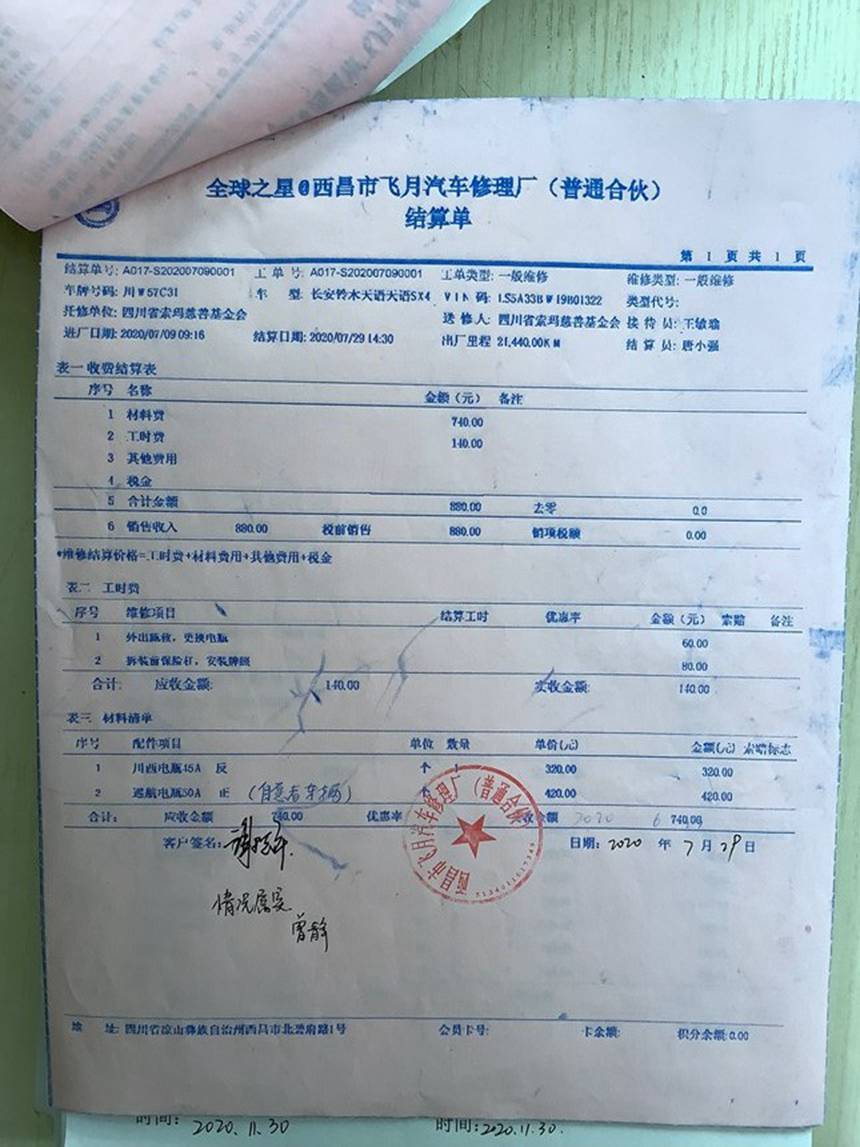 全球之星@西昌市飞月汽车修理厂（普通合伙）
结算单
第 1 页 共 1 页
结算单号: A017-S202007090001 工单号: A017-S202007090001 工单类型: 一般维修 维修类型: 一般维修
车牌号码: 川W57C31 车 型: 长安铃木天语天语SX4 VIN 码: LS5A33BW19B01322 类型代号:
托修单位: 四川省索玛慈善基金会 送 修 人: 四川省索玛慈善基金会 接 待 员: 王敏瑜
进厂日期: 2020/07/09 09:16 结算日期: 2020/07/29 14:30 出厂里程 21,440.00KM 结 算 员: 唐小强
表一 收费结算表
序号 名称 金额（元） 备注
1 材料费 740.00
2 工时费 140.00
3 其他费用
4 税金
5 合计金额 880.00 去零 0.0
6 销售收入 880.00 税前销售 880.00 销项税额 0.00
*维修结算价格=工时费+材料费用+其他费用+税金
表二 工时费
序号 维修项目 结算工时 优惠率 金额（元） 索赔 备注
1 外出施救，更换电瓶 60.00
2 拆装前保险杠，安装牌照 80.00
合计: 应收金额: 140.00 实收金额: 140.00
表三 材料清单
序号 配件项目 单位 数量 单价(元) 金额(元) 索赔标志
1 川西电瓶45A 反 个 1 320.00 320.00
2 巡航电瓶50A 正 (自愿者车辆) 420.00 420.00
合计: 应收金额 740.00 优惠率 实收金额 740.00
客户签名: 日期: 2020 年 7 月 29 日
西昌市飞月汽车修理厂（普通合伙）
情况属实
曾静
地 址: 四川省凉山彝族自治州西昌市北碧府路1号 会员卡号: 卡余额: 积分余额:0.00
时间: 2020.11.30 时间:2020.11.30.